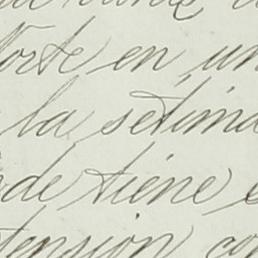 Norte en un
la setima
de tiene
tension co